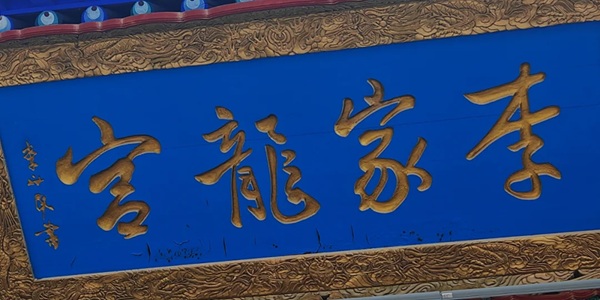 李家龍宮